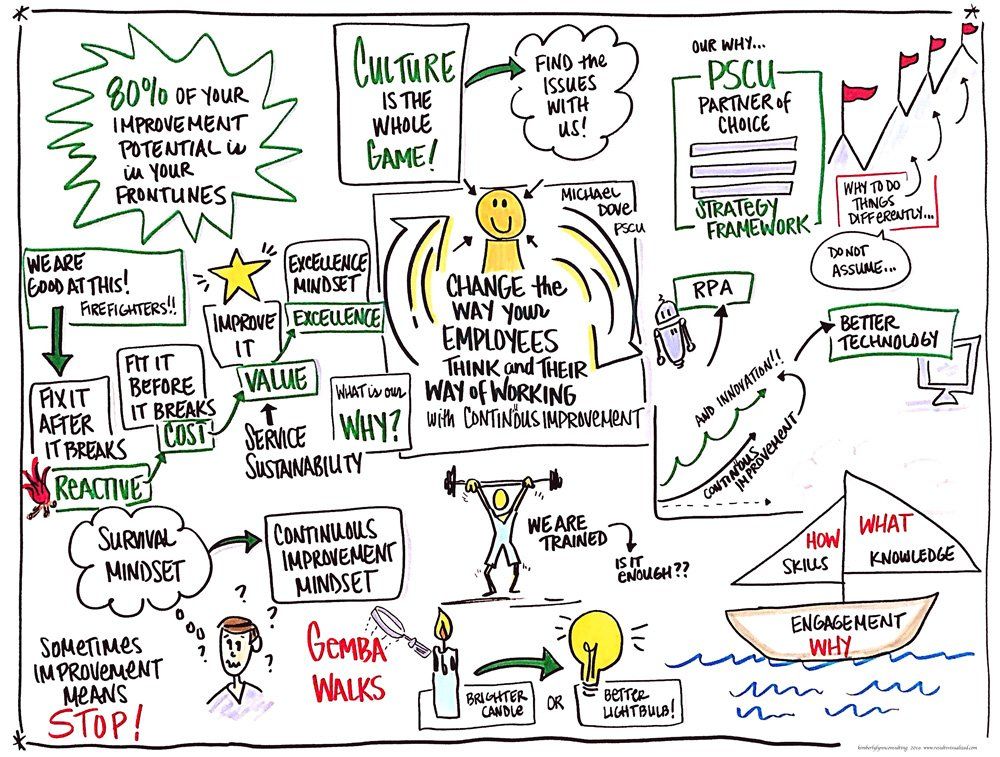 80% OF YOUR
IMPROVEMENT
POTENTIAL is
in YOUR
FRONTLINES
CULTURE
IS THE
WHOLE
GAME!
FIND the
ISSUES
WITH
US!
OUR WHY...
PSCU
PARTNER OF
CHOICE
STRATEGY
FRAMEWORK
WHY TO DO
THINGS
DIFFERENTLY...
DO NOT
ASSUME...
MICHAEL
DOVE
PSCU
CHANGE the
WAY your
EMPLOYEES
THINK and THEIR
WAY OF WORKING
with CONTINUOUS IMPROVEMENT
WE ARE
GOOD AT THIS!
FIREFIGHTERS!!
FIX IT
AFTER
IT BREAKS
REACTIVE
FIT IT
BEFORE
IT BREAKS
COST
IMPROVE
IT
VALUE
SERVICE
SUSTAINABILITY
EXCELLENCE
MINDSET
EXCELLENCE
WHAT is our
WHY?
RPA
BETTER
TECHNOLOGY
AND INNOVATION!!
CONTINUOUS
IMPROVEMENT
SURVIVAL
MINDSET
CONTINUOUS
IMPROVEMENT
MINDSET
WE ARE
TRAINED
IS IT
ENOUGH??
HOW
SKILLS
WHAT
KNOWLEDGE
ENGAGEMENT
WHY
SOMETIMES
IMPROVEMENT
MEANS
STOP!
? ? ? ? ?
GEMBA
WALKS
BRIGHTER
CANDLE
OR
BETTER
LIGHTBULB!